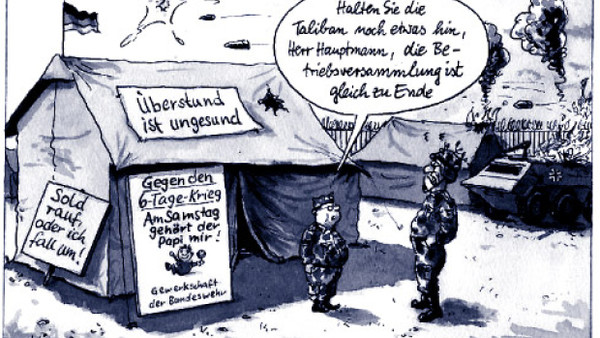 Halten Sie die
Taliban noch etwas hin,
Herr Hauptmann, die Be-
triebsversammlung ist
gleich zu Ende
Überstund
ist ungesund
Gegen den
6-Tage-Krieg
Am Samstag
gehört der
Papi mir!
Gewerkschaft
der Bundeswehr
Sold
rauf,
oder ich
fall um!